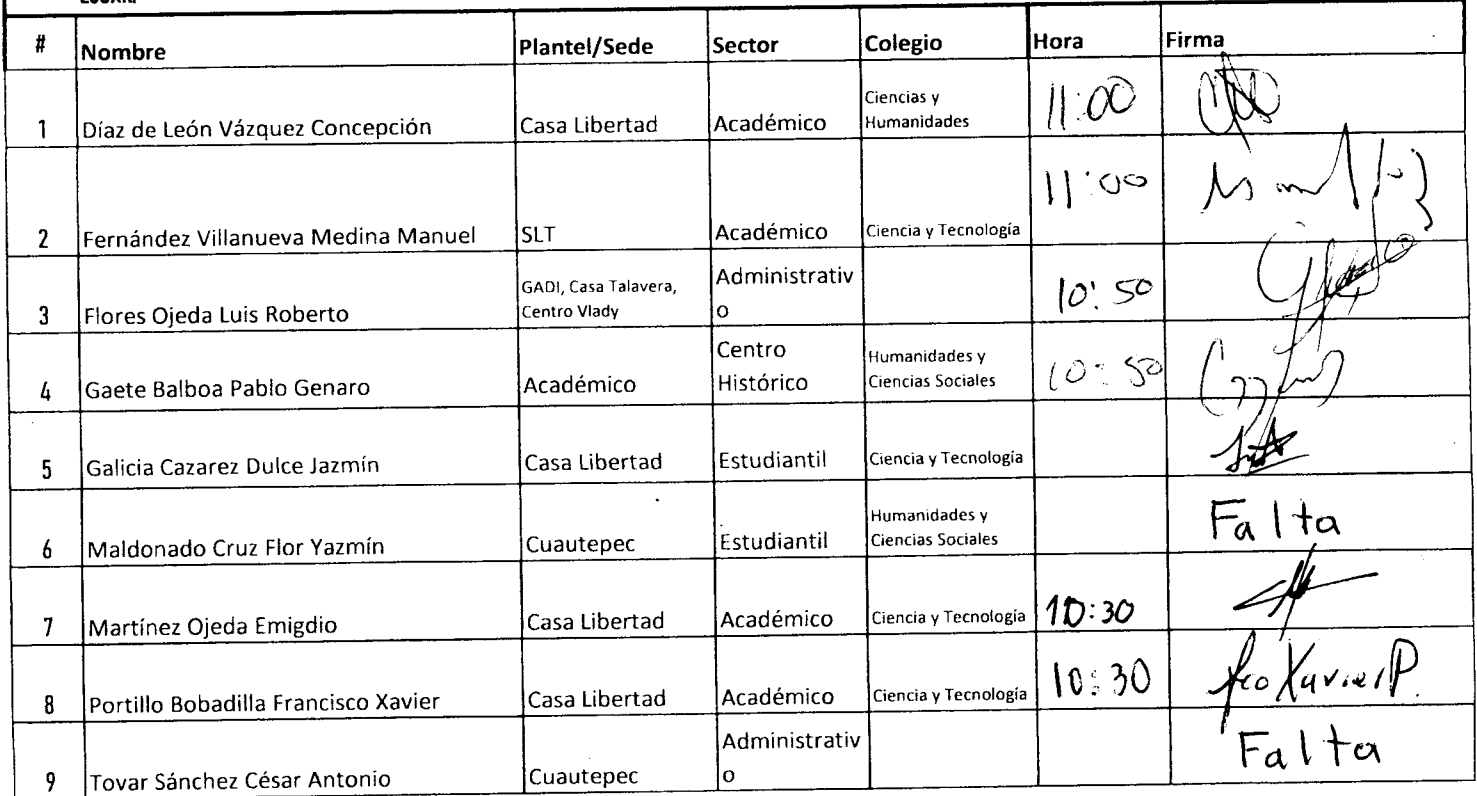 # Nombre Plantel/Sede Sector Colegio Hora Firma
1 Díaz de León Vázquez Concepción Casa Libertad Académico Ciencias y
Humanidades 11:00
2 Fernández Villanueva Medina Manuel SLT Académico Ciencia y Tecnología 11:00
3 Flores Ojeda Luis Roberto GADI, Casa Talavera,
Centro Vlady Administrativ
o 10:50
4 Gaete Balboa Pablo Genaro Académico Centro
Histórico Humanidades y
Ciencias Sociales 10:50
5 Galicia Cazarez Dulce Jazmín Casa Libertad Estudiantil Ciencia y Tecnología
6 Maldonado Cruz Flor Yazmín Cuautepec Estudiantil Humanidades y
Ciencias Sociales Falta
7 Martínez Ojeda Emigdio Casa Libertad Académico Ciencia y Tecnología 10:30
8 Portillo Bobadilla Francisco Xavier Casa Libertad Académico Ciencia y Tecnología 10:30 Xavier P.
9 Tovar Sánchez César Antonio Cuautepec Administrativ
o Falta